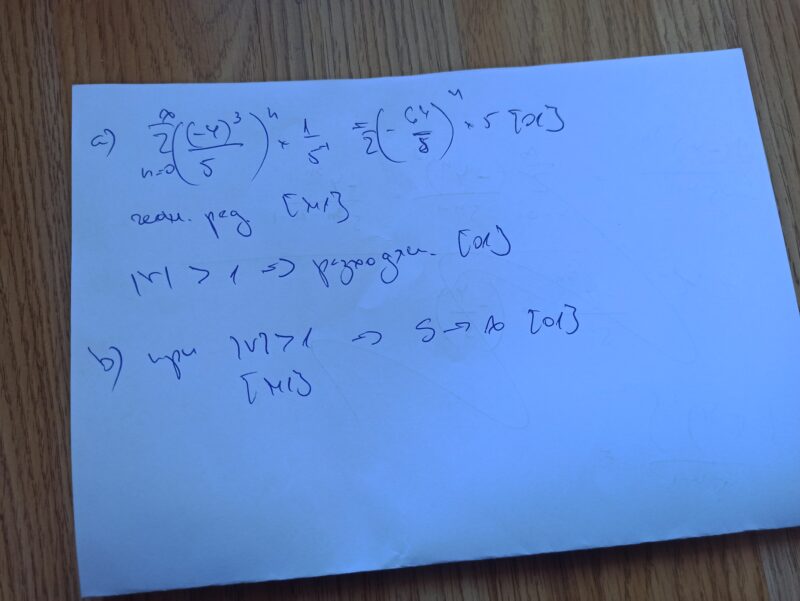 a) ∞ Σ n=0 ((-4)³/5)ⁿ × 1/5⁻¹ = Σ (-64/5)ⁿ × 5 [O1]
геом. ряд. [M1]
|r| > 1 => расходящ. [O1]
b) при |r| > 1 => S → ∞ [O1]
[M1]